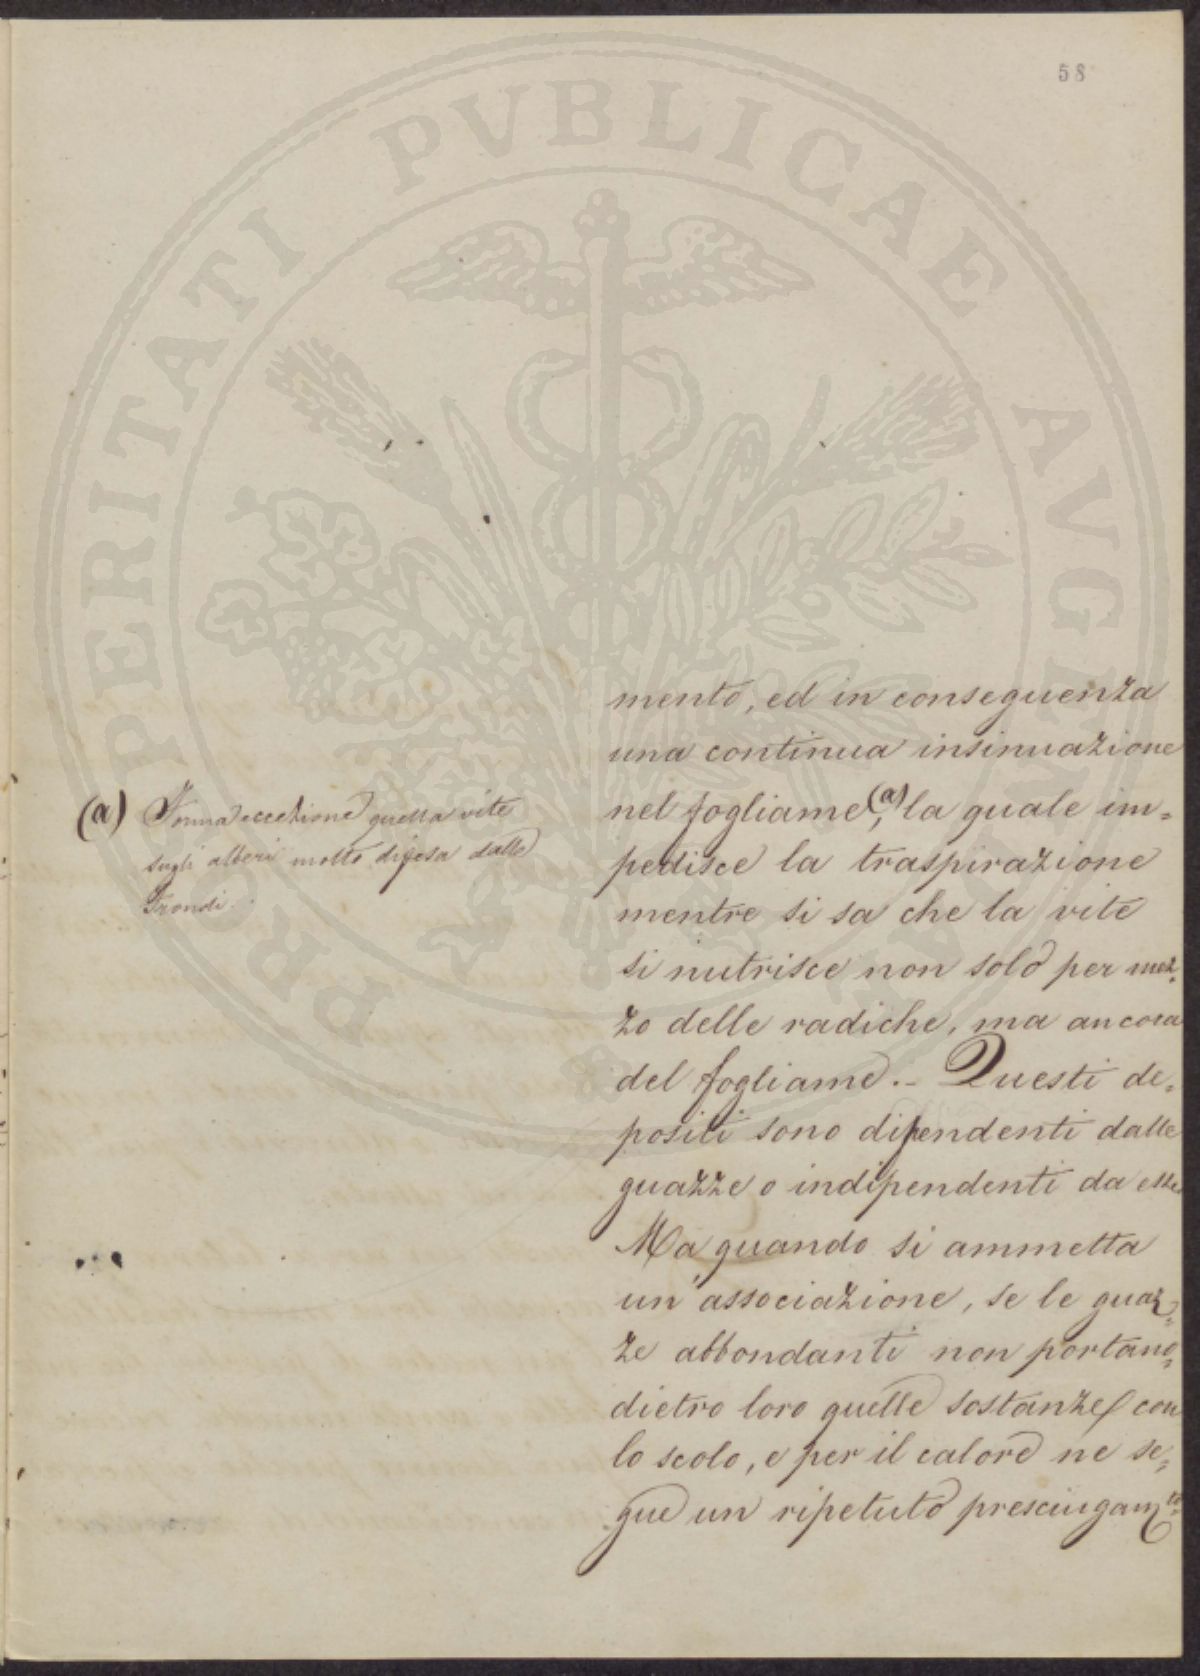 58
mento, ed in conseguenza
una continua insinuazione
nel fogliame (a), la quale im=
pedisce la traspirazione
mentre si sa che la vite
si nutrisce non solo per mez=
zo delle radiche, ma ancora
del fogliame.- Questi de=
positi sono dipendenti dalle
guazze o indipendenti da esse
Ma quando si ammetta
un'associazione, se le guaz=
ze abbondanti non portano,
dietro loro quelle sostanze con
lo scolo, e per il calore ne se=
gue un ripetuto presciugam.to
(a) eccezione quella vite
sugli alberi molto difesa dalle
frondi.
PROSPERITATI PVBLICAE AVGENDAE